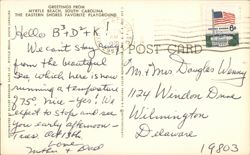 GREETINGS FROM
MYRTLE BEACH, SOUTH CAROLINA
THE EASTERN SHORES FAVORITE PLAYGROUND
Hello B³+D²+K!
We can't stay away
from the beautiful
Sea which here is now
running a temperature
of 75°. Nice - Yes! We
expect to stop and see
you early afternoon -
Tues. Oct 19th
Love
Mother + Dad
POST CARD
8¢
Mr + Mrs Douglas
1124 Windon Drive
Wilmington
Delaware
19803